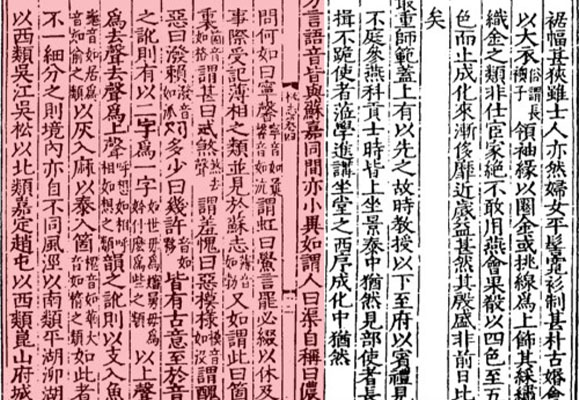 裾幅甚狹雖士人亦然婦女平髻寬衫制甚朴古婚會
以大承俗謂長襖子領袖緣以圈金或挑線為上飾其綵繡
織金之類非仕宦家絕不敢用燕會果殽以四色至五
色而止成化來漸侈靡近歲益甚然其殷盛非前日比
矣
最重師範蓋上有以先之故時教授以下至府以賓禮見
不庭參燕科貢士時皆上坐景泰中猶然見部使者長
揖不跪使者蒞學進講坐堂之西序成化中猶然
方言語音皆與蘇嘉同間亦小異如謂人曰渠自稱曰儂
問何如曰寧馨寧音如曩馨音如沆謂虹曰鱟言罷必綴以休及
事際受記薄相之類並見於蘇志薄音如勃又如謂此曰箇
裏箇音如格謂甚曰忒煞煞去聲謂羞愧曰惡模樣模音如沒謂醜
惡曰潑賴潑音如派問多少曰幾許音如夥皆有古意至於音
之訛則有以二字為一字如世毋為嬸舅毋為妗什麼為些之類以上聲
為去聲去聲為上聲呼想如相呼相如想之類韻之訛則以支入魚
龜音如居為音如俞之類以灰入麻以泰入箇槐音如華大音如惰之類如此者
不一細分之則境內亦自不同風涇以南類平湖泖湖
以西類吳江吳松以北類嘉定趙屯以西類崑山府城